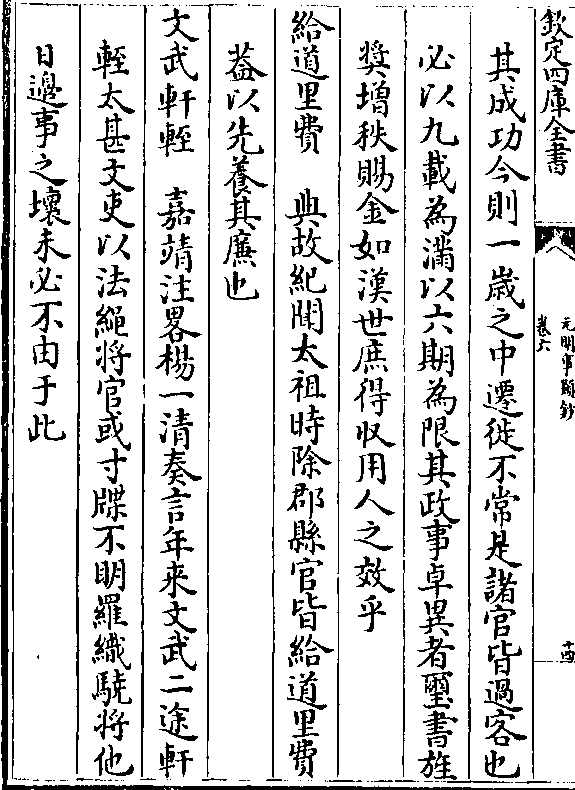 欽定四庫全書
元明事類鈔
卷六
十四
其成功今則一歲之中遷徙不常是諸官皆過客也
必以九載為滿以六期為限其政事卓異者璽書旌
奬增秩賜金如漢世庶得収用人之效乎
給道里費　典故紀聞太祖時除郡縣官皆給道里費
葢以先養其廉也
文武軒輊　嘉靖注畧楊一清奏言年来文武二途軒
輊太甚文吏以法繩將官或寸牒不明羅織驍將他
日邊事之壞未必不由于此